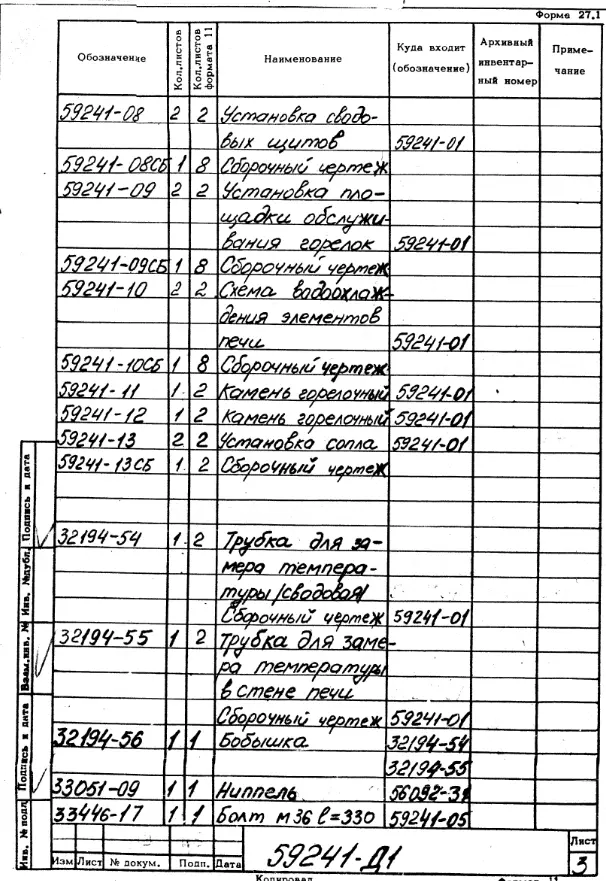 Форма 27.1
Обозначение Кол.листов Кол.листов формата 11 Наименование Куда входит (обозначение) Архивный инвентар- ный номер Приме- чание
59241-08 2 2 Установка сводо-
вых щитов 59241-01
59241-08СБ 1 8 Сборочный чертеж
59241-09 2 2 Установка пло-
щадки обслужи-
вания горелок 59241-01
59241-09СБ 1 8 Сборочный чертеж
59241-10 2 2 Схема водоохлаж-
дения элементов
печи 59241-01
59241-10СБ 1 8 Сборочный чертеж
59241-11 1 2 Камень горелочный 59241-01
59241-12 1 2 Камень горелочный 59241-01
59241-13 2 2 Установка сопла 59241-01
59241-13СБ 1 2 Сборочный чертеж
32194-54 1 2 Трубка для за-
мера темпера-
туры /сводовая/
Сборочный чертеж 59241-01
32194-55 1 2 Трубка для заме-
ра температуры
в стене печи
Сборочный чертеж 59241-01
32194-56 1 1 Бобышка 32194-54
32194-55
33051-09 1 1 Ниппель 56092-31
33446-17 1 1 Болт М36 ℓ=330 59241-05
Инв. № подл. Подпись и дата Взам.инв. № Инв. №дубл. Подпись и дата
Изм Лист № докум. Подп. Дата
59241-Д1
Лист
3
Копировал Формат 11